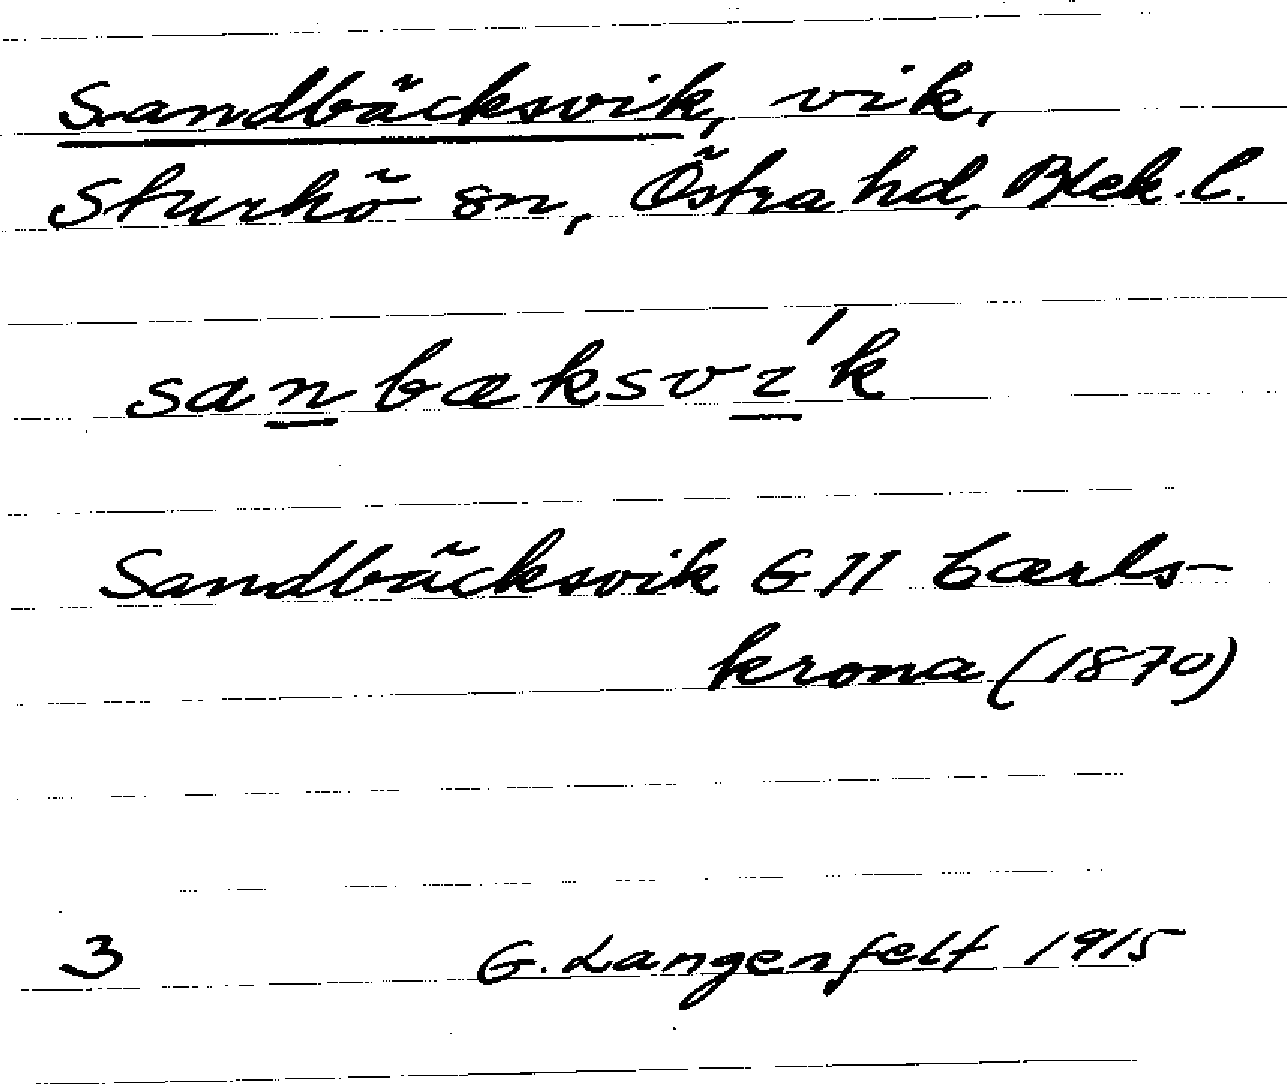 Sandbäcksvik, vik,
Sturkö sn, Östra hd, Blek. l.
sanbæksvík
Sandbäcksvik G II Carls-
krona (1870)
3 G. Langenfelt 1915